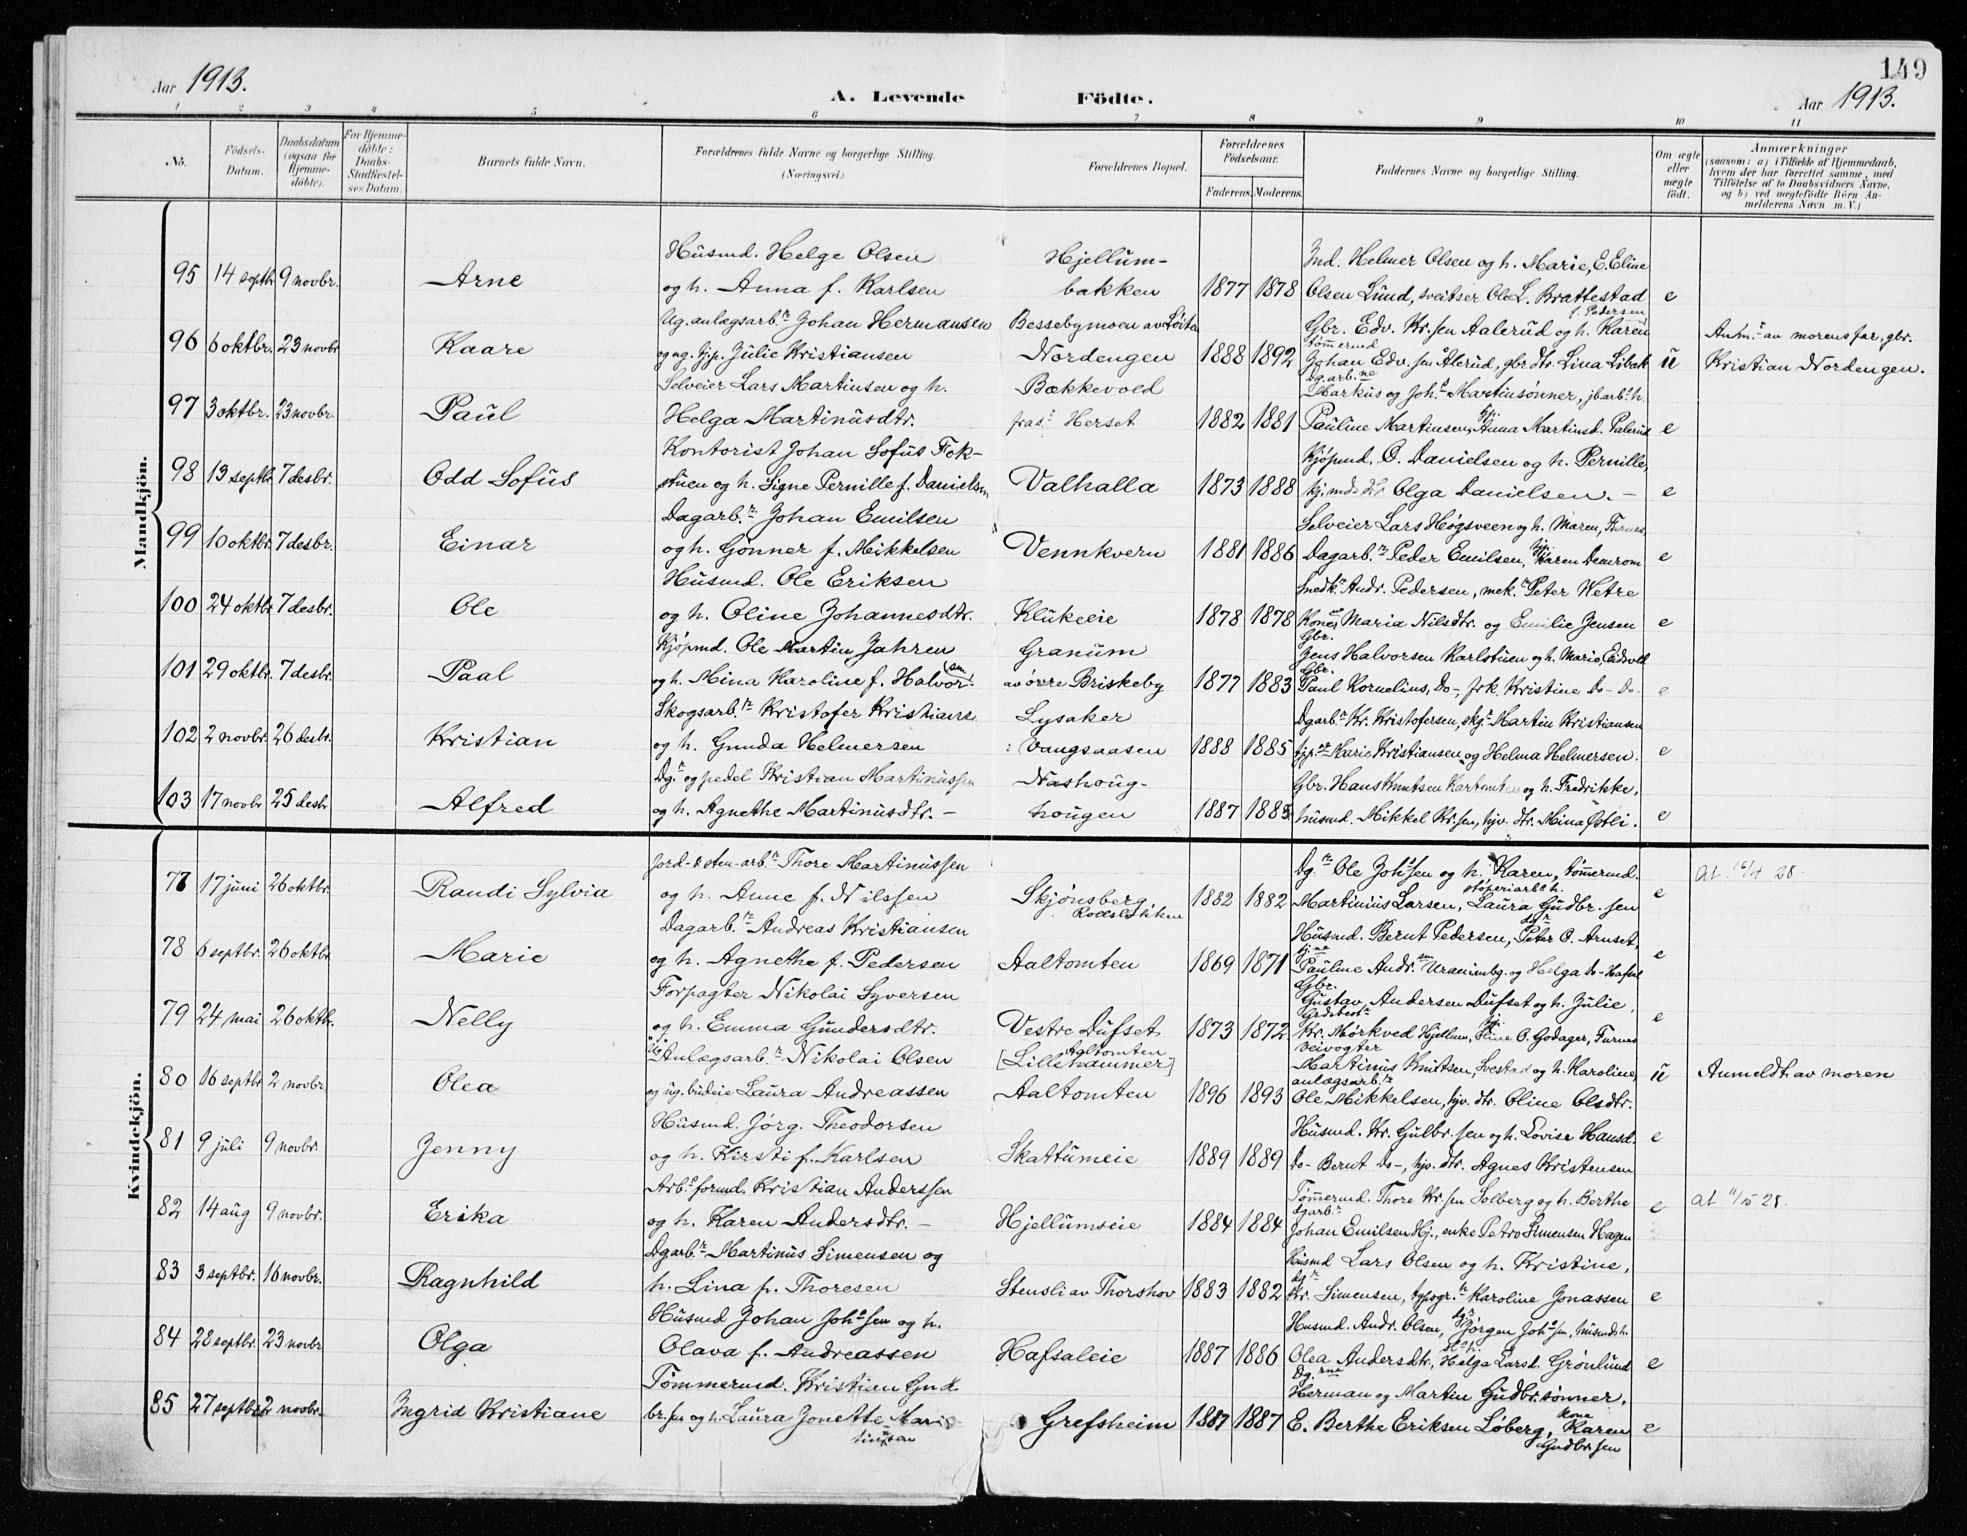 149
Aar 1913.
A. Levende Födte.
Aar 1913.
1 2 3 4 5 6 7 8 9 10 11
No.
Födsels-Datum.
Daabsdatum (ogsaa for Hjemme-döbte).
For Hjemme-döbte: Daabs-Stadfæstel-ses Datum.
Barnets fulde Navn.
Forældrenes fulde Navne og borgerlige Stilling. (Næringsvei.)
Forældrenes Bopæl.
Forældrenes Födselsaar.
Faderens. Moderens.
Faddernes Navne og borgerlige Stilling.
Om ægte eller uægte födt.
Anmærkninger (saasom: a) i Tilfælde af Hjemmedaab, hvem der har forrettet samme, med Tilföielse af to Daabsvidners Navne, og b) ved uægtefödte Börn An-melderens Navn m. V.)
Mandkjön.
Husmd. Helge Olsen Hjellum- Ind. Helmer Olsen og h. Marie, E. Eline
95 14 septb 9 novbr. Arne og h. Anna f. Karlsen bakken 1877 1878 Olsen Lund, sveitser Ole L. Brattestad e
Ug. anlægsarb.r Johan Hermansen Bessebymoen av Løiten Gbr. Edv. Kr.sen Aalerud og h. Karen f. Pedersen Anm.t av morens far, gbr.
96 6 oktbr. 23 novbr Kaare og ug. tjp. Julie Kristiansen Nordengen 1888 1892 Tømermd Johan Edv.sen Alerud, gbr dtr. Lina Libak u Kristian Nordengen.
Selveier Lars Martinsen og h. Bækkevold Dg.arb.ne Markus og Joh.s Martinsønner, jb.arb. h.
97 3 oktbr. 23 novbr. Paul Helga Martinusdtr. fras.r Herset 1882 1881 Pauline Martinsen, tjp. Anna Martinsd. e
Kontorist Johan Sofus Fek- Kjøpmd. O. Danielsen og h. Pernille,
98 13 septbr 7 desbr. Odd Sofus stuen og h. Signe Pernille f. Danielsen Valhalla 1873 1888 kj.mds dtr Olga Danielsen. – e
Dagarb.r Johan Emilsen Selveier Lars Høgsveen og h. Maren, Furnes,
99 10 oktbr. 7 desbr. Einar og h. Gonner f. Mikkelsen Vennkvern 1881 1886 Dagarb.r Peder Emilsen, tjp. Karen e
Husmd. Ole Eriksen Snedk.r Andr. Pedersen, mek.r Peter Wetre
100 24 oktbr 7 desbr. Ole og h. Oline Johannesdtr. Klukeeie 1878 1878 Koner Maria Nilsdtr. og Emilie Jensen e
Kjøpmd. Ole Martin Jahren Granum Gbr. Jens Halvorsen Karlstuen og h. Marie, Eidsvold
101 29 oktbr. 7 desbr. Paal og h. Mina Karoline f. Halvorsen av øvre Briskeby 1877 1883 Gbr. Paul Kornelius, Do-, frk. Kristine Do- Do- e
Skogsarb.r Kristofer Kristians. Lysaker Dgarb.r Kr. Kristofersen, skg.r Martin Kristiansen
102 2 novbr. 26 desbr. Kristian og h. Gunda Helmersen i Vangsaasen 1888 1885 tjp.ne Marie Kristiansen og Helma Helmersen. e
Dg.r og pedel Kristian Martinussen Nashoug- Gbr. Hans Knutsen og h. Fredrikke,
103 17 novbr 25 desbr Alfred og h. Agnethe Martinusdtr. – hougen 1887 1885 husmd. Mikkel Kr.sen, hjv. dtr. Mina Østli. e
Kvindekjön.
Jord- & sten-arb.r Thore Martinussen Dg.r Ole Joh.sen og h. Karen, tømermd.
77 17 juni 26 oktbr. Randi Sylvia og h. Anne f. Nilssen Skjønsberg, 1882 1882 Martinius Larsen, støperiarb. h. Laura Gudbr.sen e at. 16/4 28.
Dagarb.r Andreas Kristiansen Husmd. Bernt Pedersen, dg.r Peter O. Arnset,
78 6 septbr. 26 oktbr. Marie og h. Agnethe f. Pedersen Aaltomten 1869 1871 Pauline Andr. og Helga Do- e
Forpagter Nikolai Syversen Gbr. Gustav Andersen Dufset og h. Julie,
79 24 mai 26 oktbr. Nelly og h. Emma Gundersdtr. Vestre Dufset 1873 1872 Kr. Mørkved Hjellum, tjp. Eline O. Godager, Furnes e
Ug. Anlægsarb.r Nikolai Olsen Aaltomten [Lillehammer] Veivogter Martinus Knutsen, og h. Karoline,
80 16 septbr 2 novbr. Olea og ug. budeie Laura Andreassen Aaltomten 1896 1893 anlægsarb.r Ole Mikkelsen, hjv. dtr. Oline Olsdtr. u Anmeldt av moren
Husmd. Jørg. Theodorsen Husmd. Kr. Gulbr.sen og h. Lovise Hansd.
81 9 juli 9 novbr. Jenny og h. Kirsti f. Karlsen Skattumeie 1889 1889 Do- Bernt Do-, hjv. dtr. Agnes Kristensen e
Arb.s formd. Kristian Anderssen Tømermd. Thore Kr.sen Solberg og h. Berthe
82 14 aug 9 novbr. Erika og h. Karen Andersdtr. – Hjellumseie 1884 1884 dgarb.r Johan Emilsen Hj., enke Petra Simensen Hagen e at 11/5 28.
Dgarb.r Martinus Simensen og Husmd Lars Olsen og h. Kristine,
83 3 septbr. 16 novbr. Ragnhild h. Lina f. Thoresen Stensli av Thorshov 1883 1882 dg.r Kr. Simensen, typogr. h Karoline Jonassen e
Husmd Johan Joh.sen og h. Husmd. Andr. Olsen, dg.r Jørgen Joh.sen, husmds h.
84 28 septbr. 23 novbr Olga Olava f. Andreassen Hafsaleie 1887 1886 Olea Andersdtr, Helga Larsd. Grønlund e
Tømmermd. Kristian Gud- Dg.rne Herman og Martin Gudbr.sønner,
85 27 septbr 2 novbr. Ingrid Kristiane br.sen og h. Laura Jonette Martinusen Grefsheim 1887 1887 E. Berthe Eriksen Løberg, kone Karen Gudbr.sen e